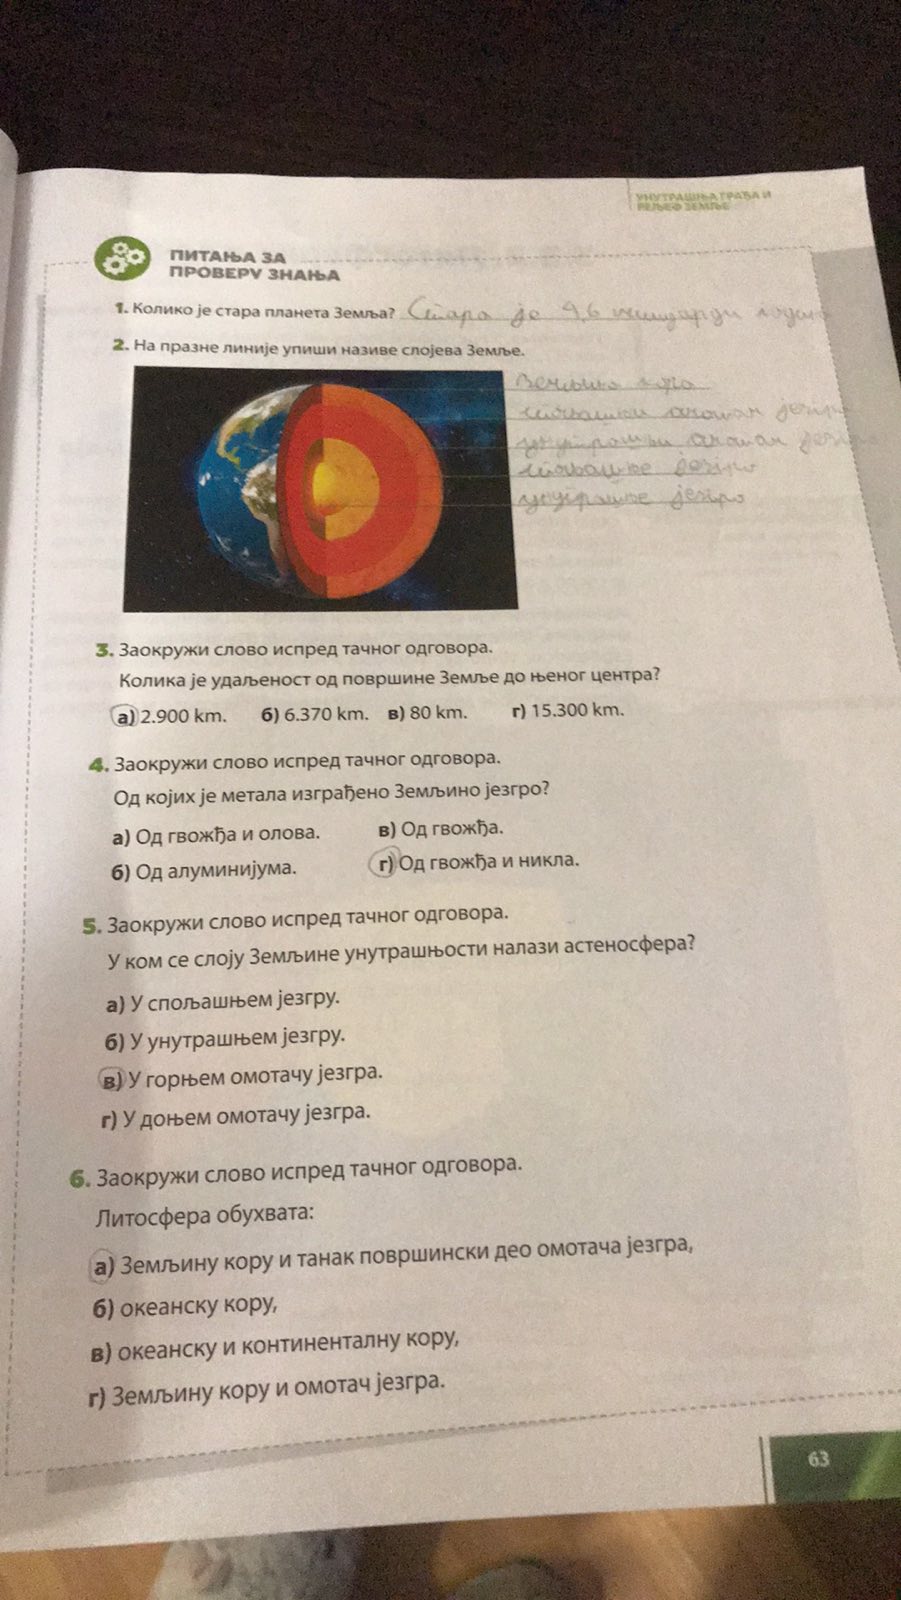 УНУТРАШЊА ГРАЂА И
РЕЉЕФ ЗЕМЉЕ
ПИТАЊА ЗА
ПРОВЕРУ ЗНАЊА
1. Колико је стара планета Земља? Стара је 4,6 милијарди година
2. На празне линије упиши називе слојева Земље.
Земљина кора
спољашњи омотач језгра
унутрашњи омотач језгра
спољашње језгро
унутрашње језгро
3. Заокружи слово испред тачног одговора.
Колика је удаљеност од површине Земље до њеног центра?
а) 2.900 km. б) 6.370 km. в) 80 km. г) 15.300 km.
4. Заокружи слово испред тачног одговора.
Од којих је метала изграђено Земљино језгро?
а) Од гвожђа и олова. в) Од гвожђа.
б) Од алуминијума. г) Од гвожђа и никла.
5. Заокружи слово испред тачног одговора.
У ком се слоју Земљине унутрашњости налази астеносфера?
а) У спољашњем језгру.
б) У унутрашњем језгру.
в) У горњем омотачу језгра.
г) У доњем омотачу језгра.
6. Заокружи слово испред тачног одговора.
Литосфера обухвата:
а) Земљину кору и танак површински део омотача језгра,
б) океанску кору,
в) океанску и континенталну кору,
г) Земљину кору и омотач језгра.
63